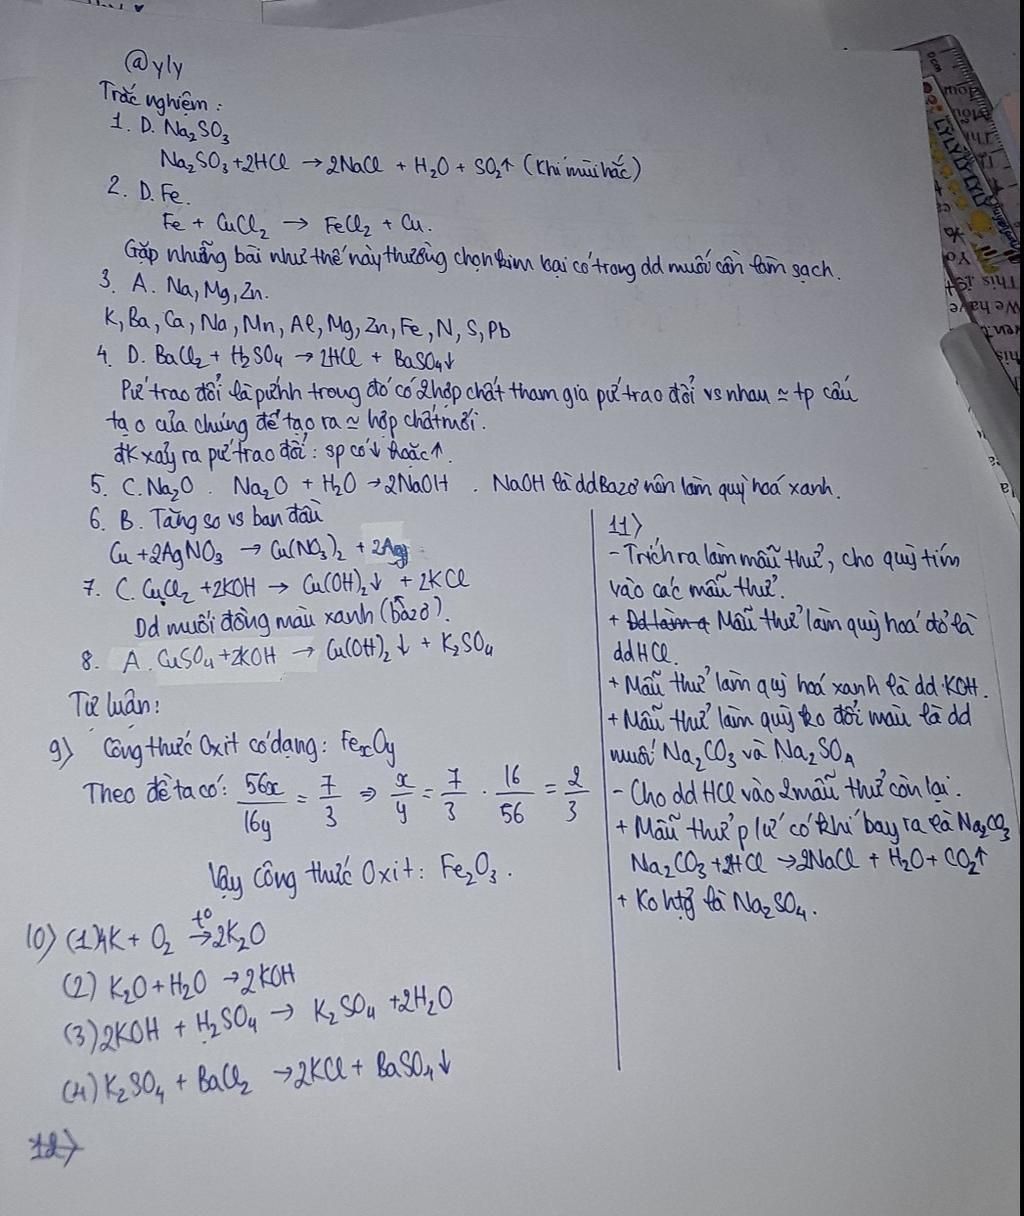 @yly
Trắc nghiệm:
1. D. Na₂SO₃
Na₂SO₃+2HCl → 2NaCl + H₂O + SO₂↑ (khí mùi hắc)
2. D. Fe.
Fe + CuCl₂ → FeCl₂ + Cu.
Gặp những bài như thế này thường chọn kim loại có trong dd muối cần làm sạch.
3. A. Na, Mg, Zn.
K, Ba, Ca, Na, Mn, Al, Mg, Zn, Fe, N, S, Pb
4. D. BaCl₂ + H₂SO₄ → 2HCl + BaSO₄↓
Pứ trao đổi là pứhh trong đó có 2 hợp chất tham gia pứ trao đổi vs nhau ~ tp cấu
tạo của chúng để tạo ra ~ hợp chất mới.
đk xảy ra pứ trao đổi: sp có ↓ hoặc ↑.
5. C. Na₂O. Na₂O + H₂O → 2NaOH. NaOH là dd Bazơ nên làm quỳ hoá xanh.
6. B. Tăng so vs ban đầu
Cu + 2AgNO₃ → Cu(NO₃)₂ + 2Ag
7. C. CuCl₂ + 2KOH → Cu(OH)₂↓ + 2KCl
Dd muối đồng màu xanh (bazơ).
8. A. CuSO₄ + 2KOH → Cu(OH)₂↓ + K₂SO₄
Tự luân:
9) Công thức Oxit có dạng: FexOy
Theo đề ta có: 56x/16y = 7/3 ⇒ x/y = 7/3 . 16/56 = 2/3
Vậy công thức Oxit: Fe₂O₃.
10) (1) 4K + O₂ →t° 2K₂O
(2) K₂O + H₂O → 2KOH
(3) 2KOH + H₂SO₄ → K₂SO₄ + 2H₂O
(4) K₂SO₄ + BaCl₂ → 2KCl + BaSO₄↓
12)
11)
- Trích ra làm mẫu thử, cho quỳ tím
vào các mẫu thử.
+ Dd làm q Mẫu thử làm quỳ hoá đỏ là
dd HCl.
+ Mẫu thử làm quỳ hoá xanh là dd KOH.
+ Mẫu thử làm quỳ ko đổi màu là dd
muối Na₂CO₃ và Na₂SO₄
- Cho dd HCl vào 2 mẫu thử còn lại.
+ Mẫu thử p/ứ có khí bay ra là Na₂CO₃
Na₂CO₃ + 2HCl → 2NaCl + H₂O + CO₂↑
+ Ko htg là Na₂SO₄.
LYLYLYLY
This is
We have